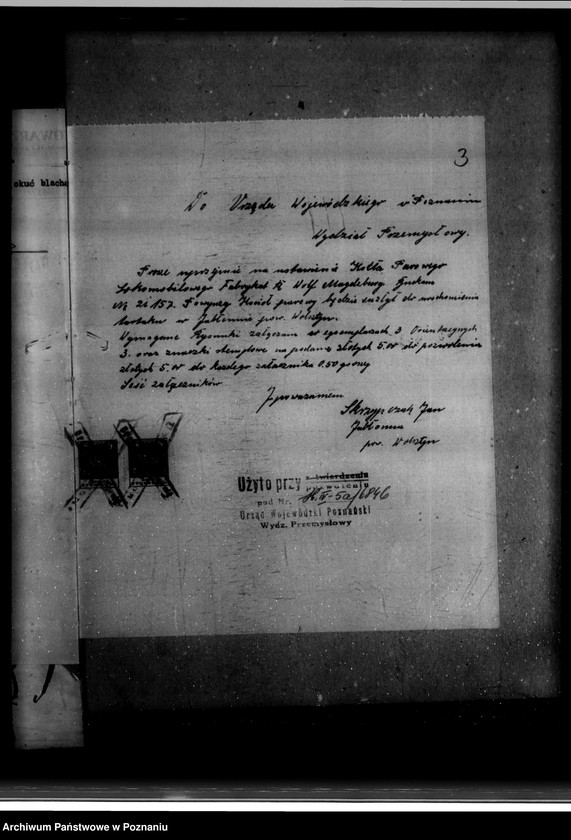 3
okuć blacha
Do Urzędu Wojewódzkiego w Poznaniu
Wydział Przemysłowy.
Prosze uprzejmie na ustawienie Kotła Parowego
Lokomobilowego Fabrykat R Wolf Magdeburg Buckau
Nr 2i157. Powyższy Kocioł parowy będzie służył do uruchomienia
tartaku w Jabłonnie pow. Wolsztyn.
Wymagane Rysunki załączam w egzemplarzach 3 Orientacyjnych
3. oraz znaczki stemplowe na podanie złotych 5.00 do pozwolenia
złotych 5.00 do każdego załącznika 0.50 groszy
Sześć załączników
Z poważaniem
Skrzypczak Jan
Jabłonna
pow. Wolsztyn
Użyto przy zatwierdzeniu
pozwoleniu
pod Nr.
Urząd Wojewódzki Poznański
Wydz. Przemysłowy
Archiwum Państwowe w Poznaniu